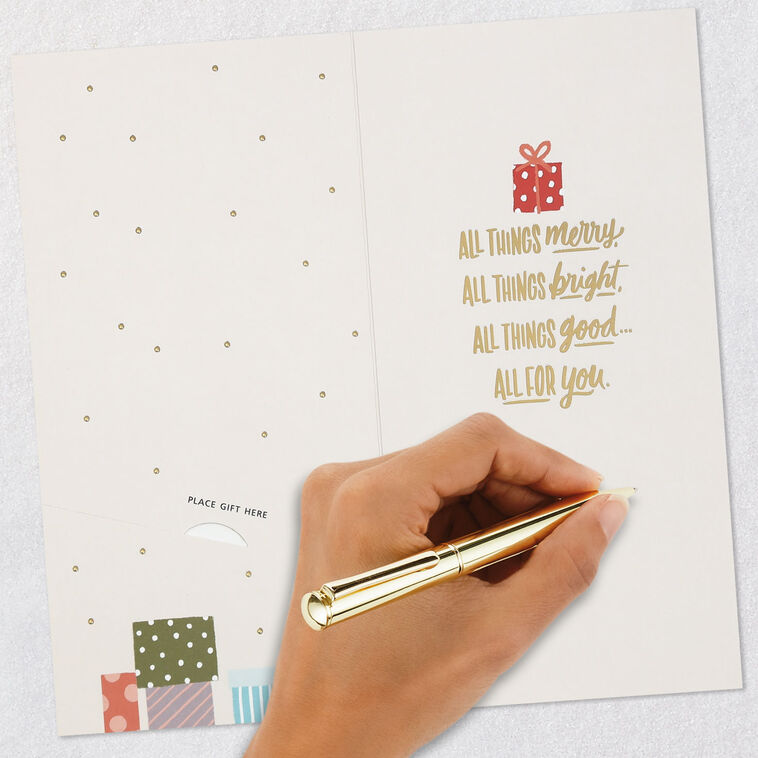 ALL THINGS merry,
ALL THINGS bright,
ALL THINGS good...
ALL FOR you.
PLACE GIFT HERE